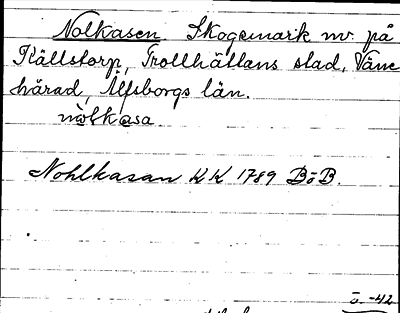 Nolkasen Skogsmark nv. på
Källstorp, Trollhättans stad, Väne
härad, Älfsborgs län.
nòlkasa
Nohlkasan KK 1789 BöB.
ö. -42